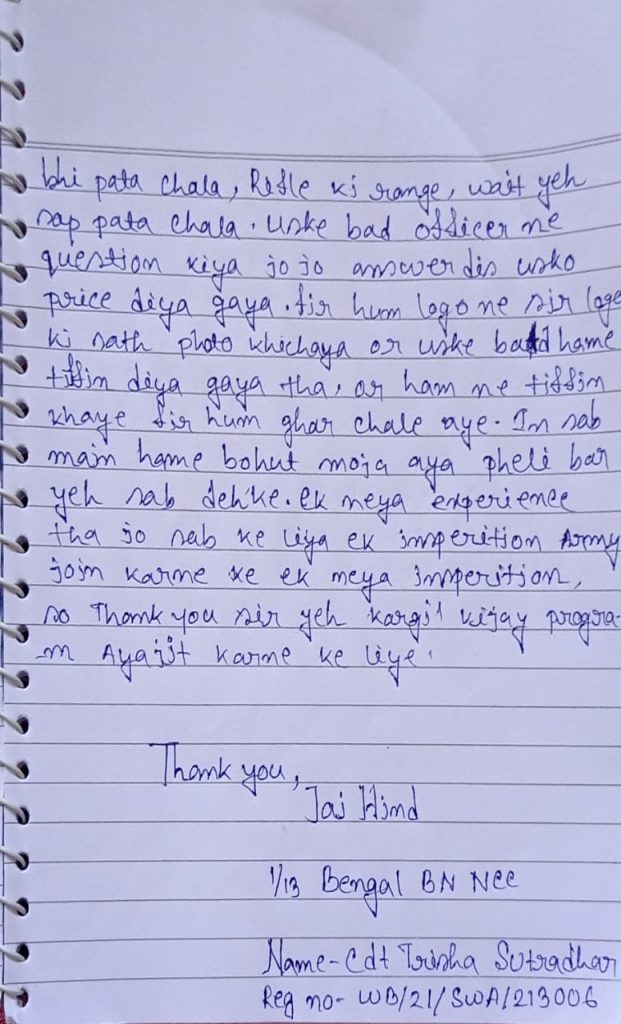 bhi pata chala, Rifle ki range, wait yeh
sap pata chala. Uske bad officer ne
question kiya jo jo answer dis usko
price diya gaya. fir hum logo ne sir loge
ki sath photo khichaya or uske baad hame
tiffin diya gaya tha, or ham ne tiffin
khaye fir hum ghar chale aye. In sab
main hame bohut moja aya pheli bar
yeh sab deh'ke. ek neya experience
tha jo sab ke liya ek insperition Army
join karne ke ek neya insperition,
so Thank you sir yeh kargil vijay progra-
m Ayajit karne ke liye.
Thank you,
Jai Hind
1/13 Bengal BN NCC
Name- Cdt Trisha Sutradhar
Reg no- WB/21/SWA/213006